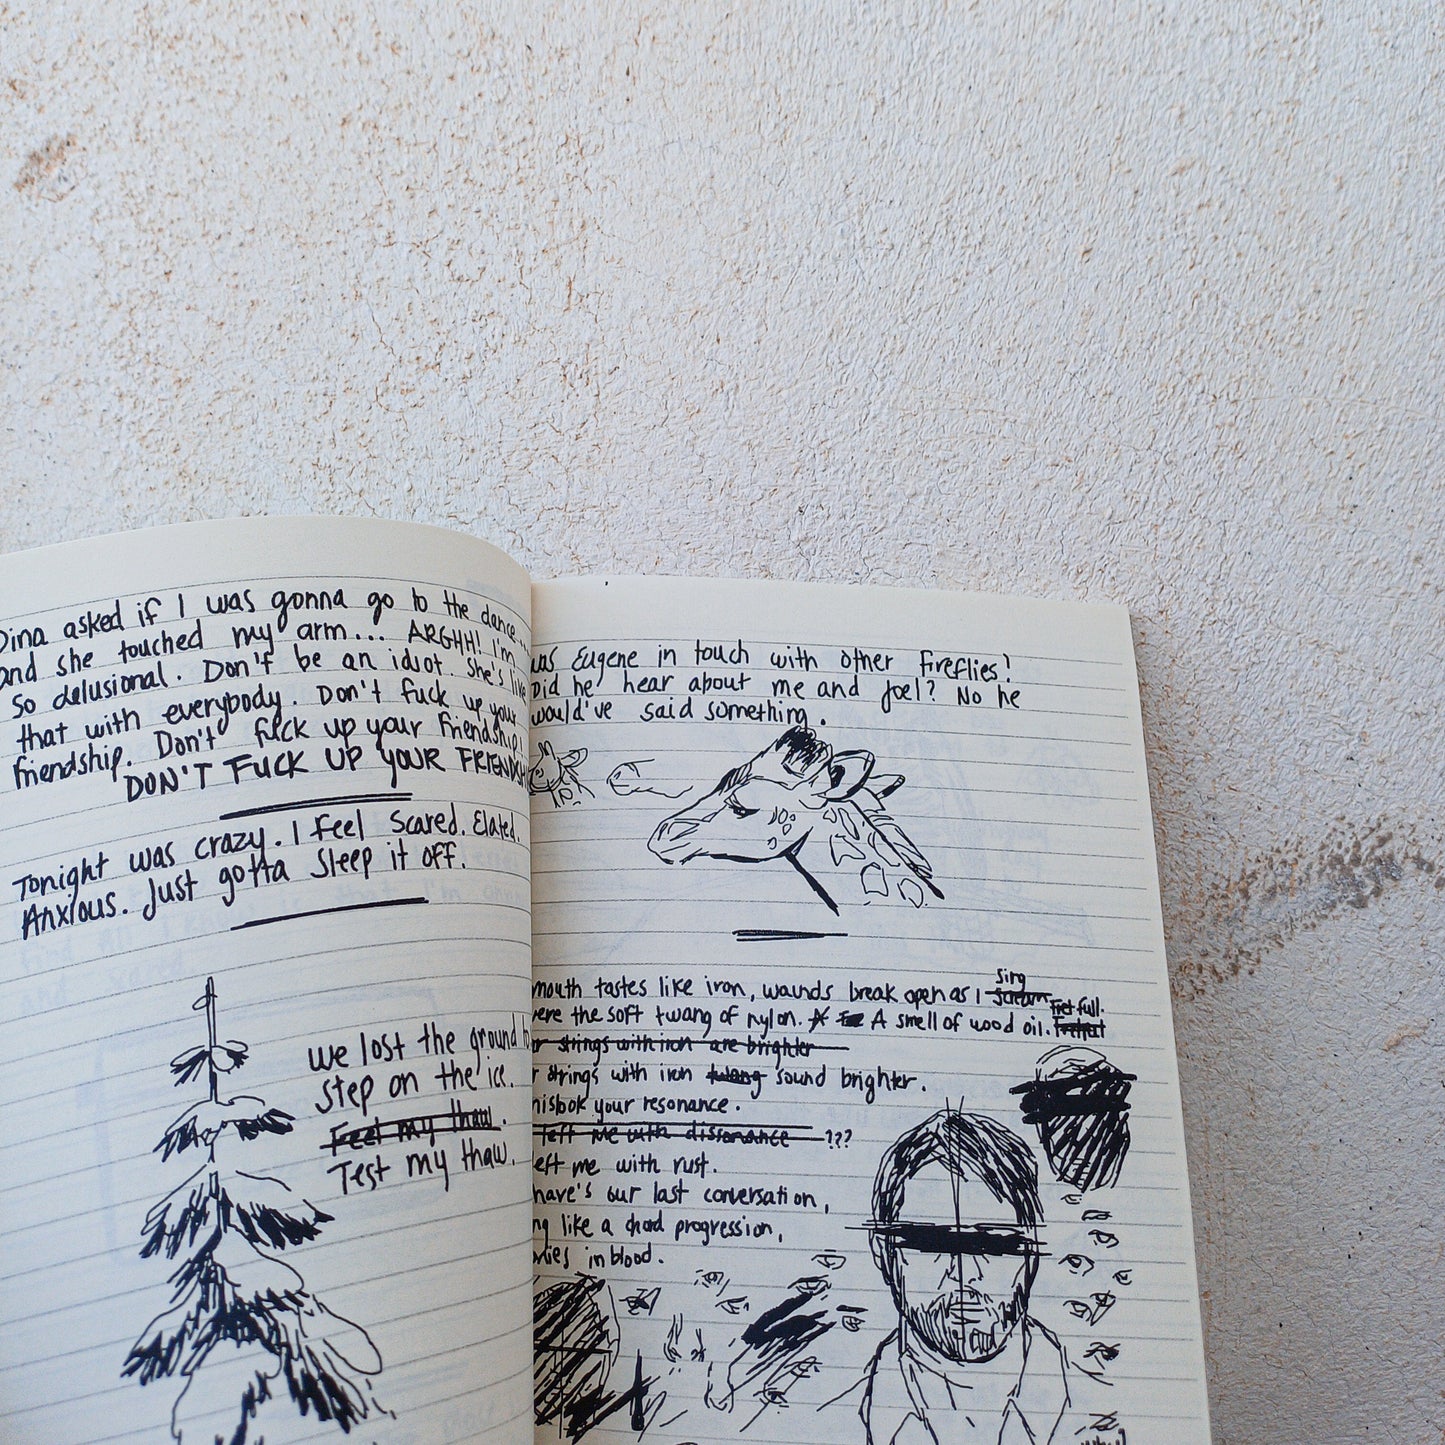 Dina asked if I was gonna go to the dance...
and she touched my arm... ARGHH! I'm
so delusional. Don't be an idiot. She's like
that with everybody. Don't fuck up your
friendship. Don't fuck up your friendship!
DON'T FUCK UP YOUR FRIENDSH
Tonight was crazy. I feel scared. Elated.
Anxious. Just gotta sleep it off.
We lost the ground to
step on the ice.
Feel my thaw.
Test my thaw.
was Eugene in touch with other fireflies?
Did he hear about me and Joel? No he
would've said something.
mouth tastes like iron, wounds break open as I scream sing
were the soft twang of nylon. A smell of wood oil. Fretful.
strings with iron are brighter
strings with iron twang sound brighter.
mistook your resonance.
left me with dissonance ???
left me with rust.
have's our last conversation,
ng like a chord progression,
in blood.